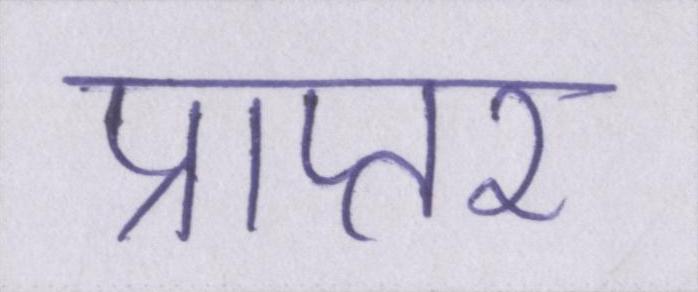 प्राप्तर